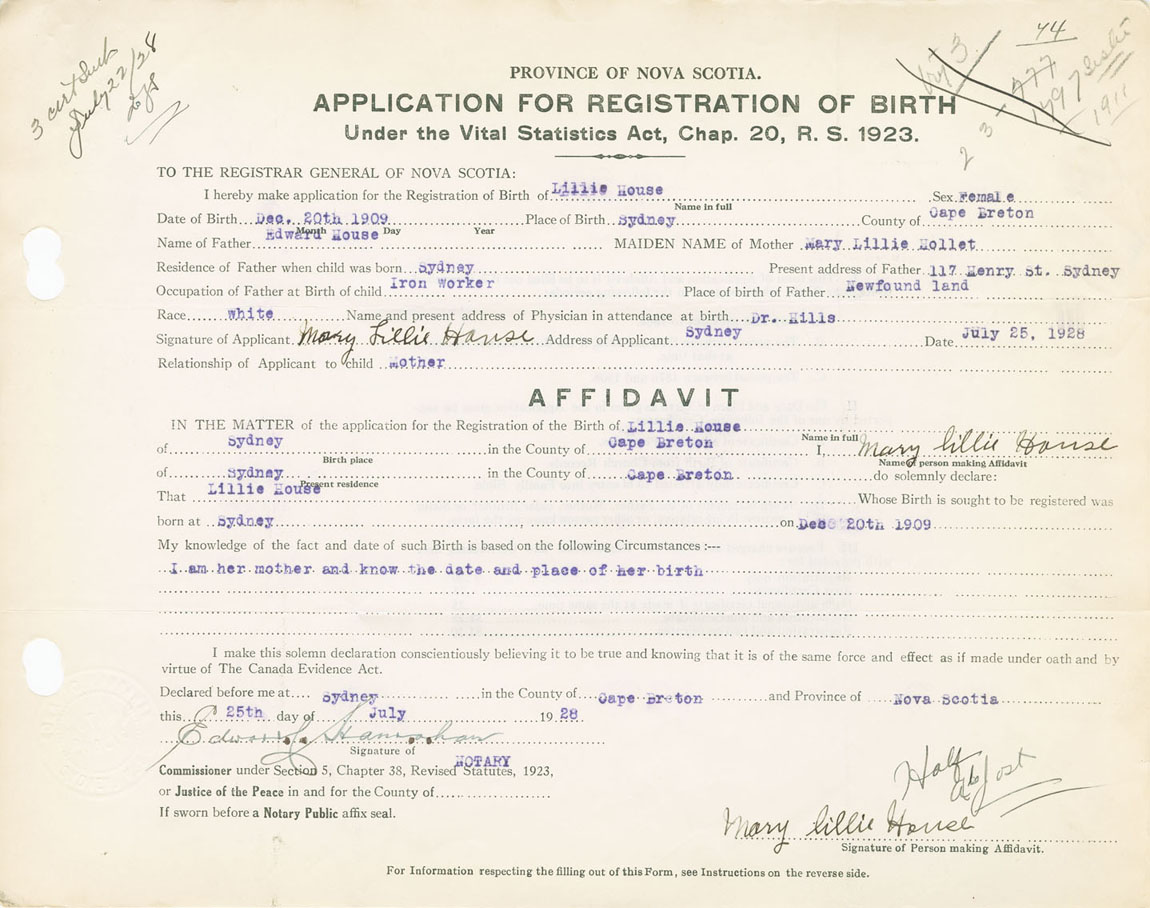 3 cert sent
July 22/28
44
3
777
1497
1911
2 3
PROVINCE OF NOVA SCOTIA.
APPLICATION FOR REGISTRATION OF BIRTH
Under the Vital Statistics Act, Chap. 20, R. S. 1923.
TO THE REGISTRAR GENERAL OF NOVA SCOTIA:
I hereby make application for the Registration of Birth of Lillie House Sex Female
Name in full
Date of Birth Dec. 20th 1909 Place of Birth Sydney County of Cape Breton
Month Day Year
Name of Father Edward House MAIDEN NAME of Mother Mary Lillie Hollet
Residence of Father when child was born Sydney Present address of Father 117 Henry St. Sydney
Occupation of Father at Birth of child Iron Worker Place of birth of Father Newfound land
Race white Name and present address of Physician in attendance at birth Dr. Hills
Signature of Applicant Mary Lillie House Address of Applicant Sydney Date July 25, 1928
Relationship of Applicant to child Mother
AFFIDAVIT
IN THE MATTER of the application for the Registration of the Birth of Lillie House
Name in full
of Sydney in the County of Cape Breton I, Mary Lillie House
Birth place Name of person making Affidavit
of Sydney in the County of Cape Breton do solemnly declare:
Present residence
That Lillie House Whose Birth is sought to be registered was
born at Sydney on Dec 20th 1909
My knowledge of the fact and date of such Birth is based on the following Circumstances :---
I am her mother and know the date and place of her birth
I make this solemn declaration conscientiously believing it to be true and knowing that it is of the same force and effect as if made under oath and by
virtue of The Canada Evidence Act.
Declared before me at Sydney in the County of Cape Breton and Province of Nova Scotia
this 25th day of July 1928.
Signature of
NOTARY
Commissioner under Section 5, Chapter 38, Revised Statutes, 1923,
or Justice of the Peace in and for the County of
If sworn before a Notary Public affix seal.
Mary Lillie House
Signature of Person making Affidavit.
For Information respecting the filling out of this Form, see Instructions on the reverse side.